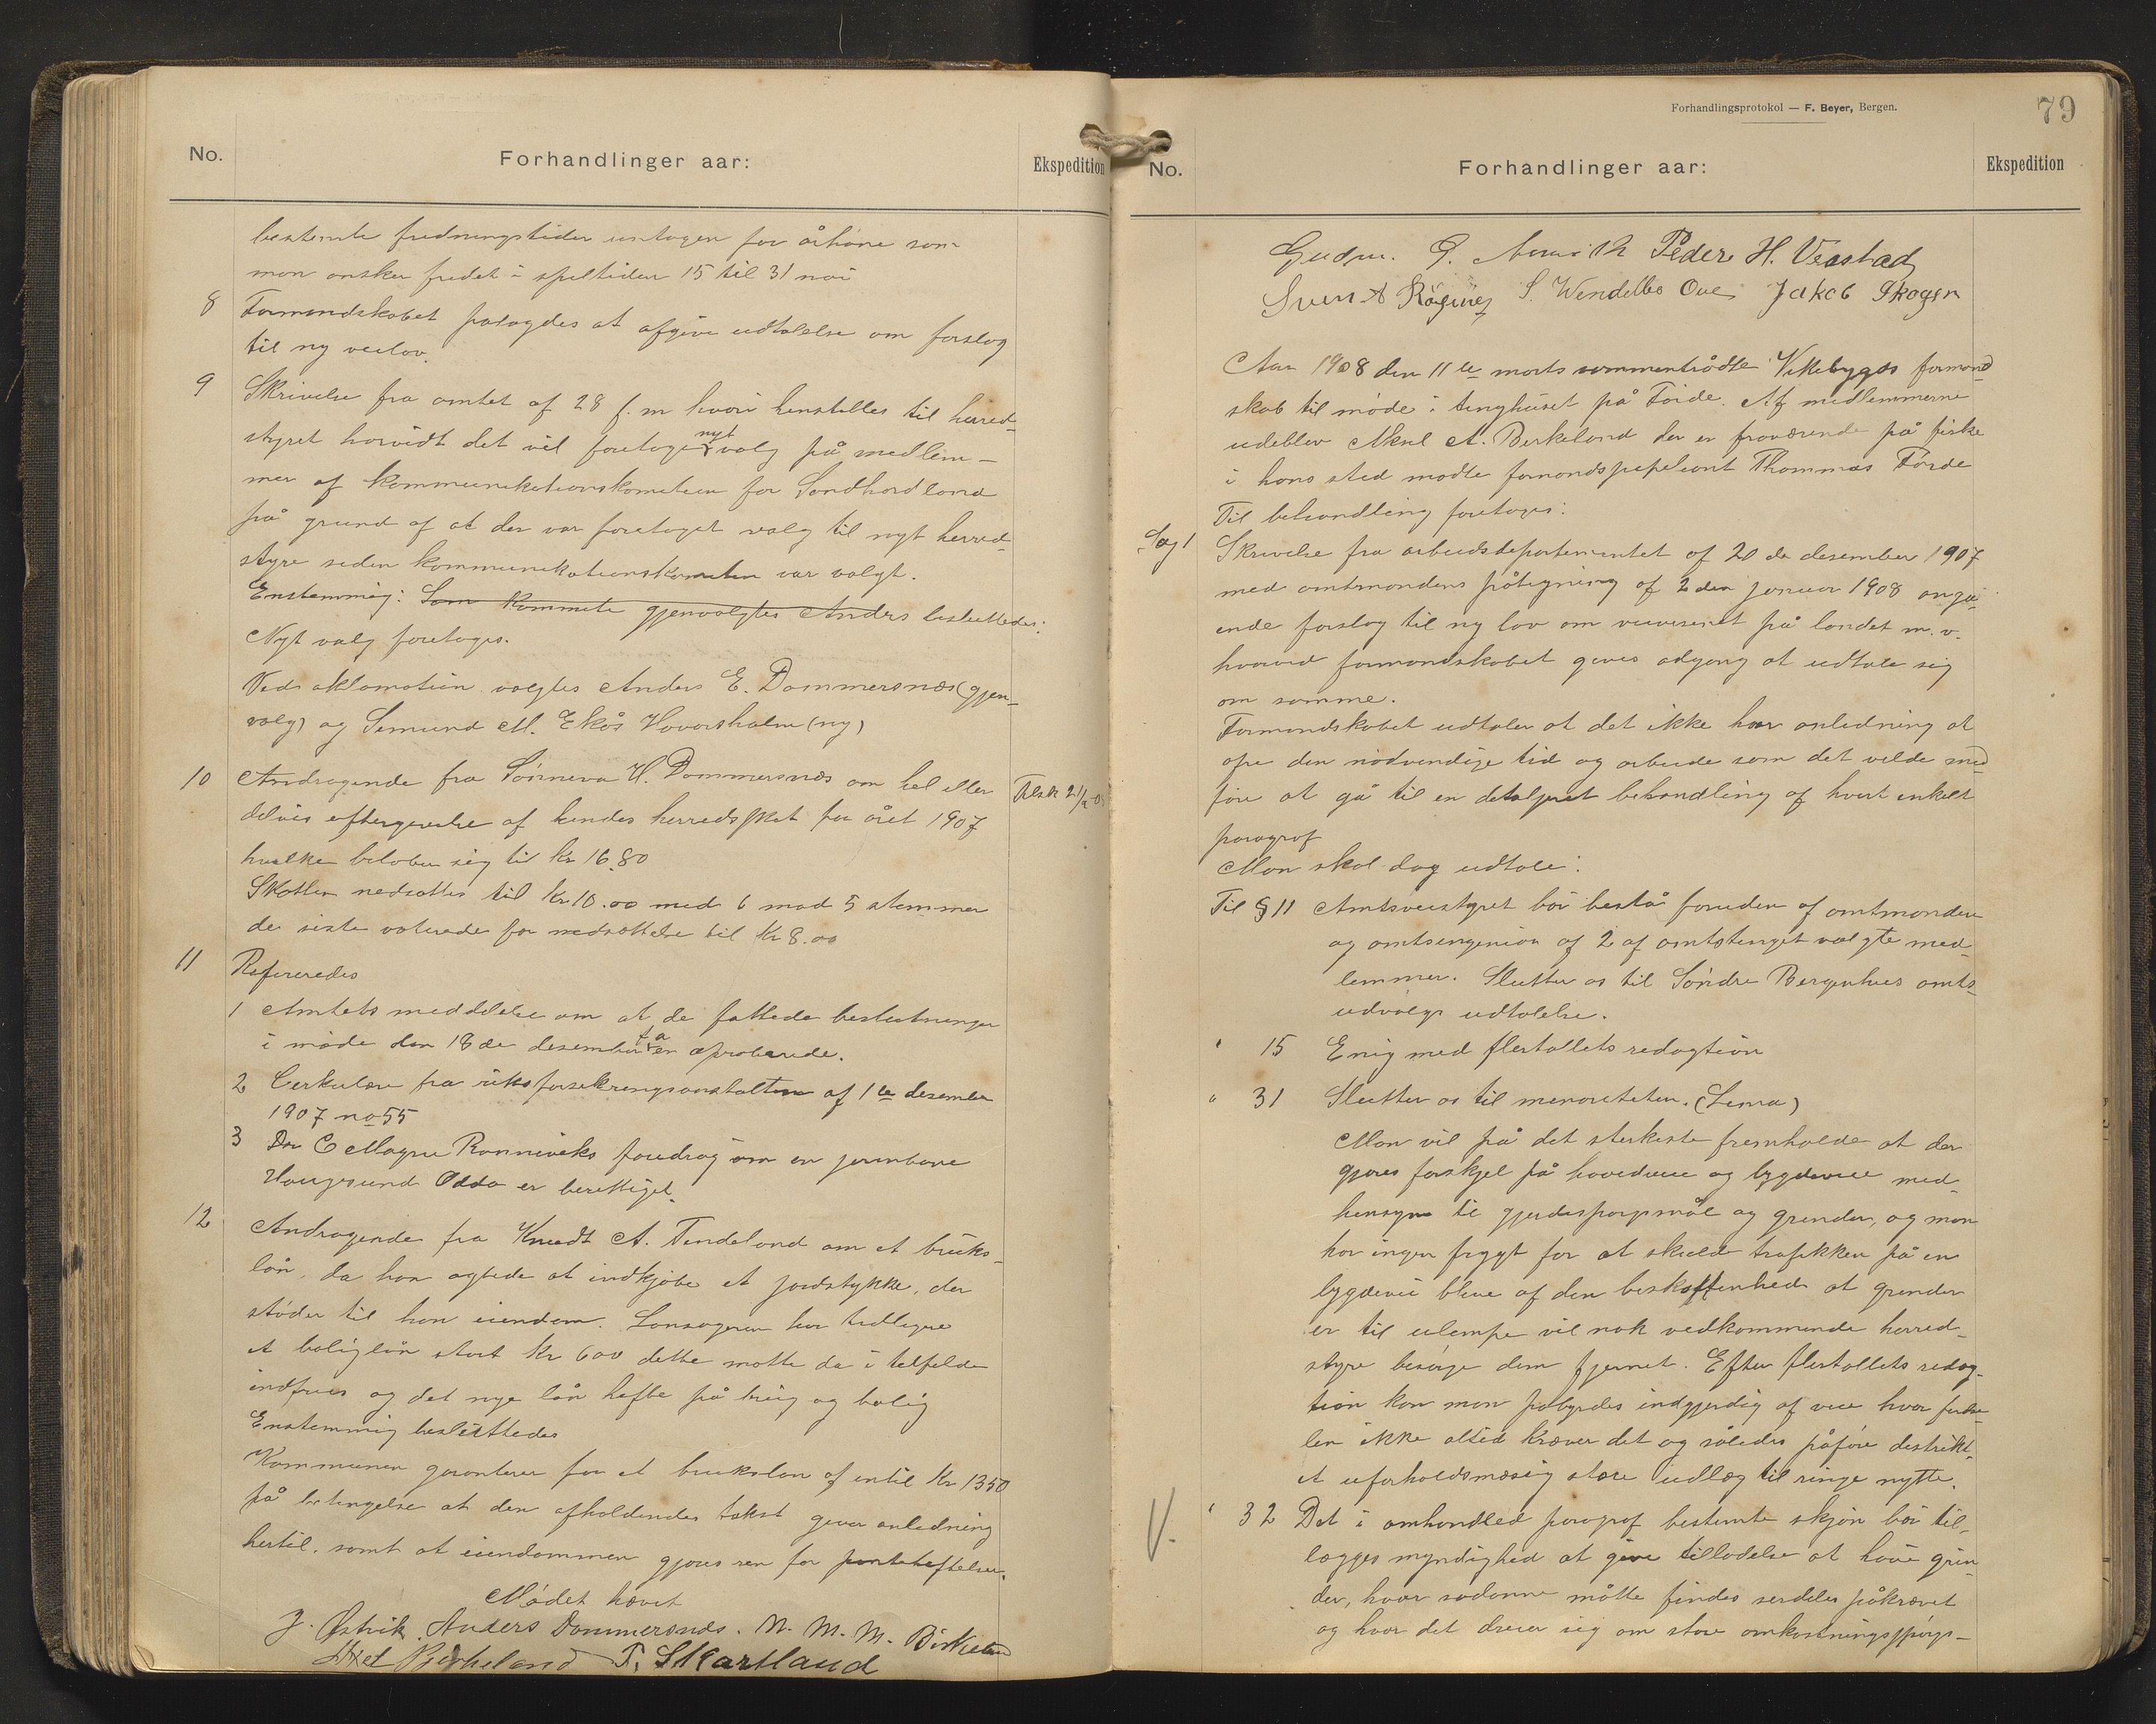 No.
Forhandlinger aar:
Ekspedition
bestemte fredningstider untagen for århane som
man ønsker fredet i spiltiden 15 til 31 mai
8 Formandskabet pålagdes at afgive udtalelse om forslag
til ny veilov.
9 Skrivelse fra amtet af 28 f. m hvori henstilles til herred-
styret hvorvidt det vil foretage nyt valg på medlem-
mer af kommunikationskomiteen for Søndhordland
på grund af at der var foretaget valg til nyt herred-
styre siden kommunikationskomiteen var valgt.
Enstemmig: Som Kommite gjenvalgtes Anders besluttedes:
Nyt valg foretages.
Ved aklamation valgtes Anders E. Dommersnæs (gjen-
valg) og Semund M. Ekås Hovorsholm (ny)
10 Andragende fra Sønneva H. Dommersnæs om hel eller
delvis eftergivelse af hendes herredsskat for året 1907
hvilke beløber sig til kr 16.80
Skatten nedsattes til Kr 10.00 med 6 mod 5 stemmer
de siste voterede for nedsættelse til Kr 8.00
11 Refereredes
1 Amtets meddelelse om at de fattede beslutninger
i møde den 18de desember f a er aproberede.
2 Cirkulære fra riksforsikringsanstalten af 1ste desember
1907 no 55
3 Om C Magne Rønneviks foredrag om en jernbane
Haugesund Odda er berettiget.
12 Andragende fra Knudt A. Tendeland om et bruks-
lån, da han agtede at indkjøbe et jordstykke, der
støder til han eiendom. Lånsøgeren har tidligere
et boliglån stort kr 600 dette måtte da i telfelde
indfries og det nye lån hefte på brug og bolig
Enstemmig besluttedes
Kommunen garanterer for et brukslån af intil Kr 1350
på betingelse at den afholdendes takst giver anledning
hertil, samt at eiendommen gjøres ren for panteheftelser.
Mødet hævet
J. Østvik. Anders Dommersnæs. N. M. M. Birkeland
Axel Birkeland T. Skartland
Forhandlingsprotokol — F. Beyer, Bergen.
79
No.
Forhandlinger aar:
Ekspedition
Peder H. Vestad
Sven A S. Wendelbo Oue Jakob Skogen
Aar 1908 den 11te marts sammentrådte Vikebygds formand-
skab til møde i tinghuset på Førde. Af medlemmerne
udeblev Aksel A. Berkeland der er fraværende på fiske
i hans sted mødte formandssupeleant Thommas Førde
Til behandling foretages:
Sag 1 Skrivelse fra arbeidsdepartementet af 20de desember 1907
med amtmandens påtegning af 2den januar 1908 angå-
ende forslag til ny lov om veivesenet på landet m. v.
hvorved formandskabet gives adgang at udtale sig
om samme.
Formandskabet udtaler at det ikke har anledning at
ofre den nødvendige tid og arbeide som det vilde med
føre at gå til en detaljeret behandling af hvert enkelt
paragraf
Man skal dog udtale:
Til § 11 Amtsveistyret bør bestå foruden af amtmanden
og amtsingeniør af 2 af amtstinget valgte med-
lemmer. Slutter os til Søndre Bergenhus amts-
udvalgs udtalelse.
" 15 Enig med flertallets redagtion
" 31 Slutter os til menoriteten. (Lema)
Man vil på det sterkeste fremholde at der
gjøres forskjel på hovedveie og bygdeveie med-
hensyn til gjerdespørgsmål og grender, og man
har ingen frygt for at skulde trafikken på en
bygdevei blive af den beskaffenhed at grender
er til ulempe vil nok vedkommende herred-
styre besørge dem fjernet. Efter flertallets redag-
tion kan man påbyrdes indgjerdig af veie hvor færdse-
len ikke altid kræver det og således påføre distrikt-
et uforholdsmæsig store udlæg til ringe nytte.
V.
" 32 Det i omhandled paragraf bestemte skjøn bør til-
lægges myndighed at give tilladelse at have grin-
der, hvor sådanne måtte findes serdeles påkrævet
og hvor det dreier sig om store omkostningsspørgs-